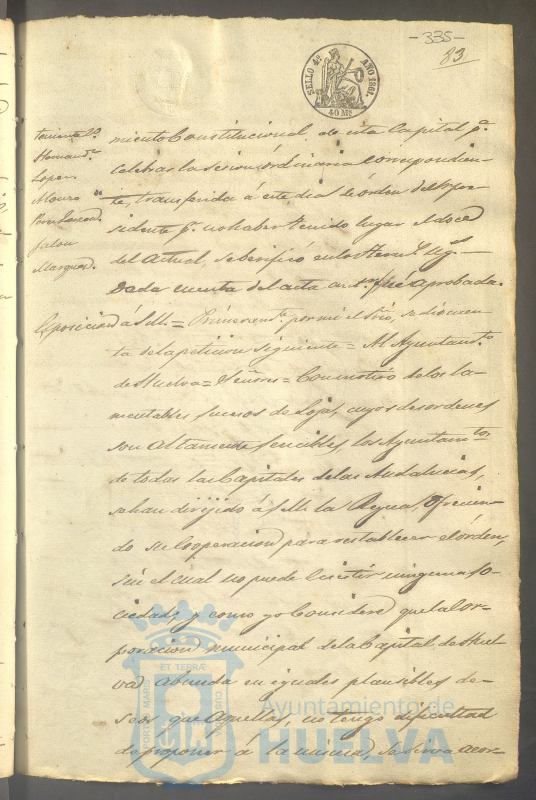 -335-
83
SELLO 4º AÑO 1861.
40 Mˢ
miento Constitucional de esta Capital pª
Hernandz
celebrar la sesion ordinaria correspondien-
Lopez
te, transferida á este dia de órden del Sr pre-
sidente pr no haber tenido lugar el doce
del actual, se berificó en los term.s sig.s
Jalon
Marquez
Dada cuenta del acta antr. fué aprobada.
Esposicion á S.M. = Primeramte por mi el Srio, se dió cuen-
ta de la peticion siguiente = Al Ayuntamto
de Huelva = Señores = Con motivo de los la-
mentables sucesos de Loja, cuyos desordenes
son altamente sencibles, los Ayuntamtos
de todas las Capitales de las Andalucias,
se han dirijido á S.M. la Reyna, ofrecien-
do su cooperacion para restablecer el órden,
sin el cual no puede Ecsistir ninguna so-
ciedad, y como yo Considere que la Cor-
poracion municipal de la Capital de Huel-
va abunda en iguales plausibles de-
seos que Aquellas, no tengo dificultad
de proponer á la misma, se sirva acor-
PORTUS MARIS ET TERRÆ CUSTODIA
Ayuntamiento de
HUELVA